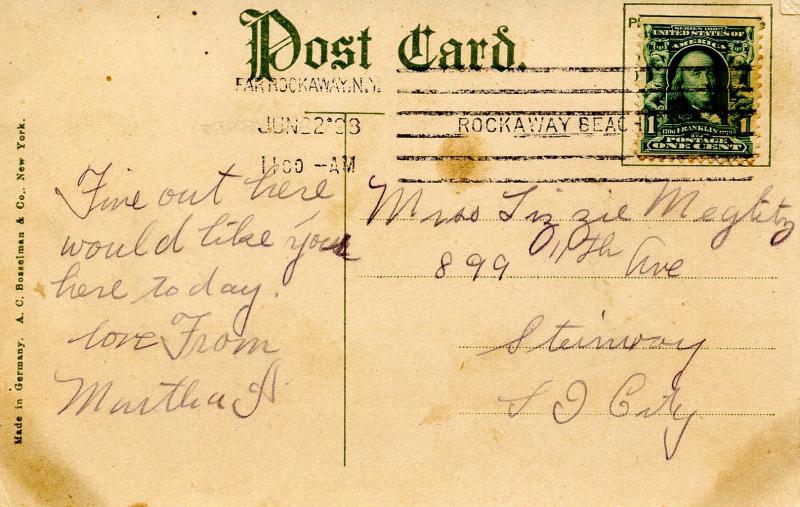 Post Card.
FAR ROCKAWAY, N.Y.
JUN 22 '08
11 00 - AM
ROCKAWAY BEACH
SERIES 1902
UNITED STATES OF
AMERICA
1 FRANKLIN 1
POSTAGE
ONE CENT
Fine out here
would like you
here to day.
love From
Martha
Miss Lizzie Meglitz
899 11th Ave
Steinway
L I City
Made in Germany. A. C. Bosselman & Co., New York.